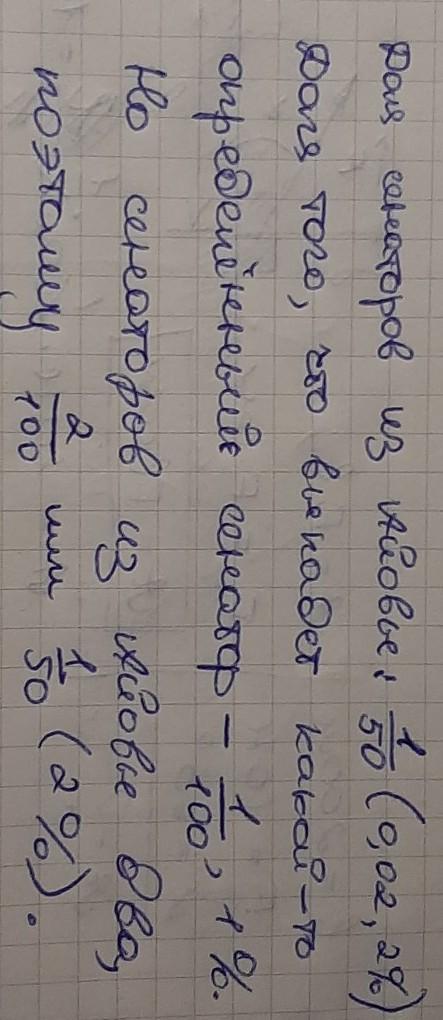 Доля сенаторов из Айовы: 1/50 (0,02, 2%)
Доля того, что выпадет какой-то
определённый сенатор – 1/100, 1%.
Но сенаторов из Айовы два,
поэтому 2/100 или 1/50 (2%).